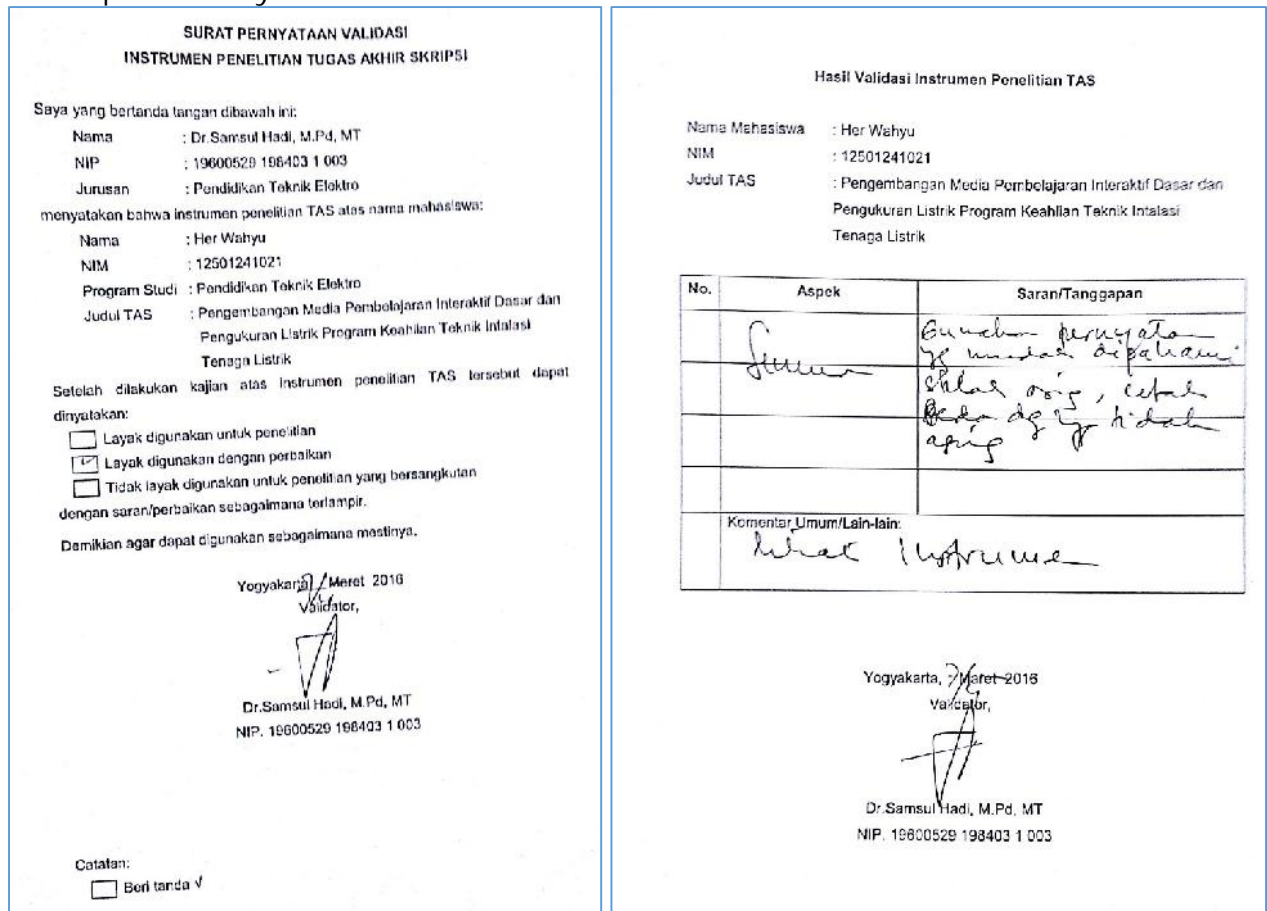 SURAT PERNYATAAN VALIDASI
INSTRUMEN PENELITIAN TUGAS AKHIR SKRIPSI
Saya yang bertanda tangan dibawah ini:
Nama : Dr.Samsul Hadi, M.Pd, MT
NIP : 19600529 198403 1 003
Jurusan : Pendidikan Teknik Elektro
menyatakan bahwa instrumen penelitian TAS atas nama mahasiswa:
Nama : Her Wahyu
NIM : 12501241021
Program Studi : Pendidikan Teknik Elektro
Judul TAS : Pengembangan Media Pembelajaran Interaktif Dasar dan
Pengukuran Listrik Program Keahlian Teknik Intalasi
Tenaga Listrik
Setelah dilakukan kajian atas instrumen penelitian TAS tersebut dapat
dinyatakan:
Layak digunakan untuk penelitian
Layak digunakan dengan perbaikan
Tidak layak digunakan untuk penelitian yang bersangkutan
dengan saran/perbaikan sebagaimana terlampir.
Demikian agar dapat digunakan sebagaimana mestinya.
Yogyakarta, Maret 2016
Validator,
Dr.Samsul Hadi, M.Pd, MT
NIP. 19600529 198403 1 003
Catatan:
Beri tanda √
Hasil Validasi Instrumen Penelitian TAS
Nama Mahasiswa : Her Wahyu
NIM : 12501241021
Judul TAS : Pengembangan Media Pembelajaran Interaktif Dasar dan
Pengukuran Listrik Program Keahlian Teknik Intalasi
Tenaga Listrik
No. Aspek Saran/Tanggapan
Gunakan pernyataan
yg mudah dipahami
tidak
Komentar Umum/Lain-lain:
lihat Instrumen
Yogyakarta, Maret 2016
Validator,
Dr.Samsul Hadi, M.Pd, MT
NIP. 19600529 198403 1 003